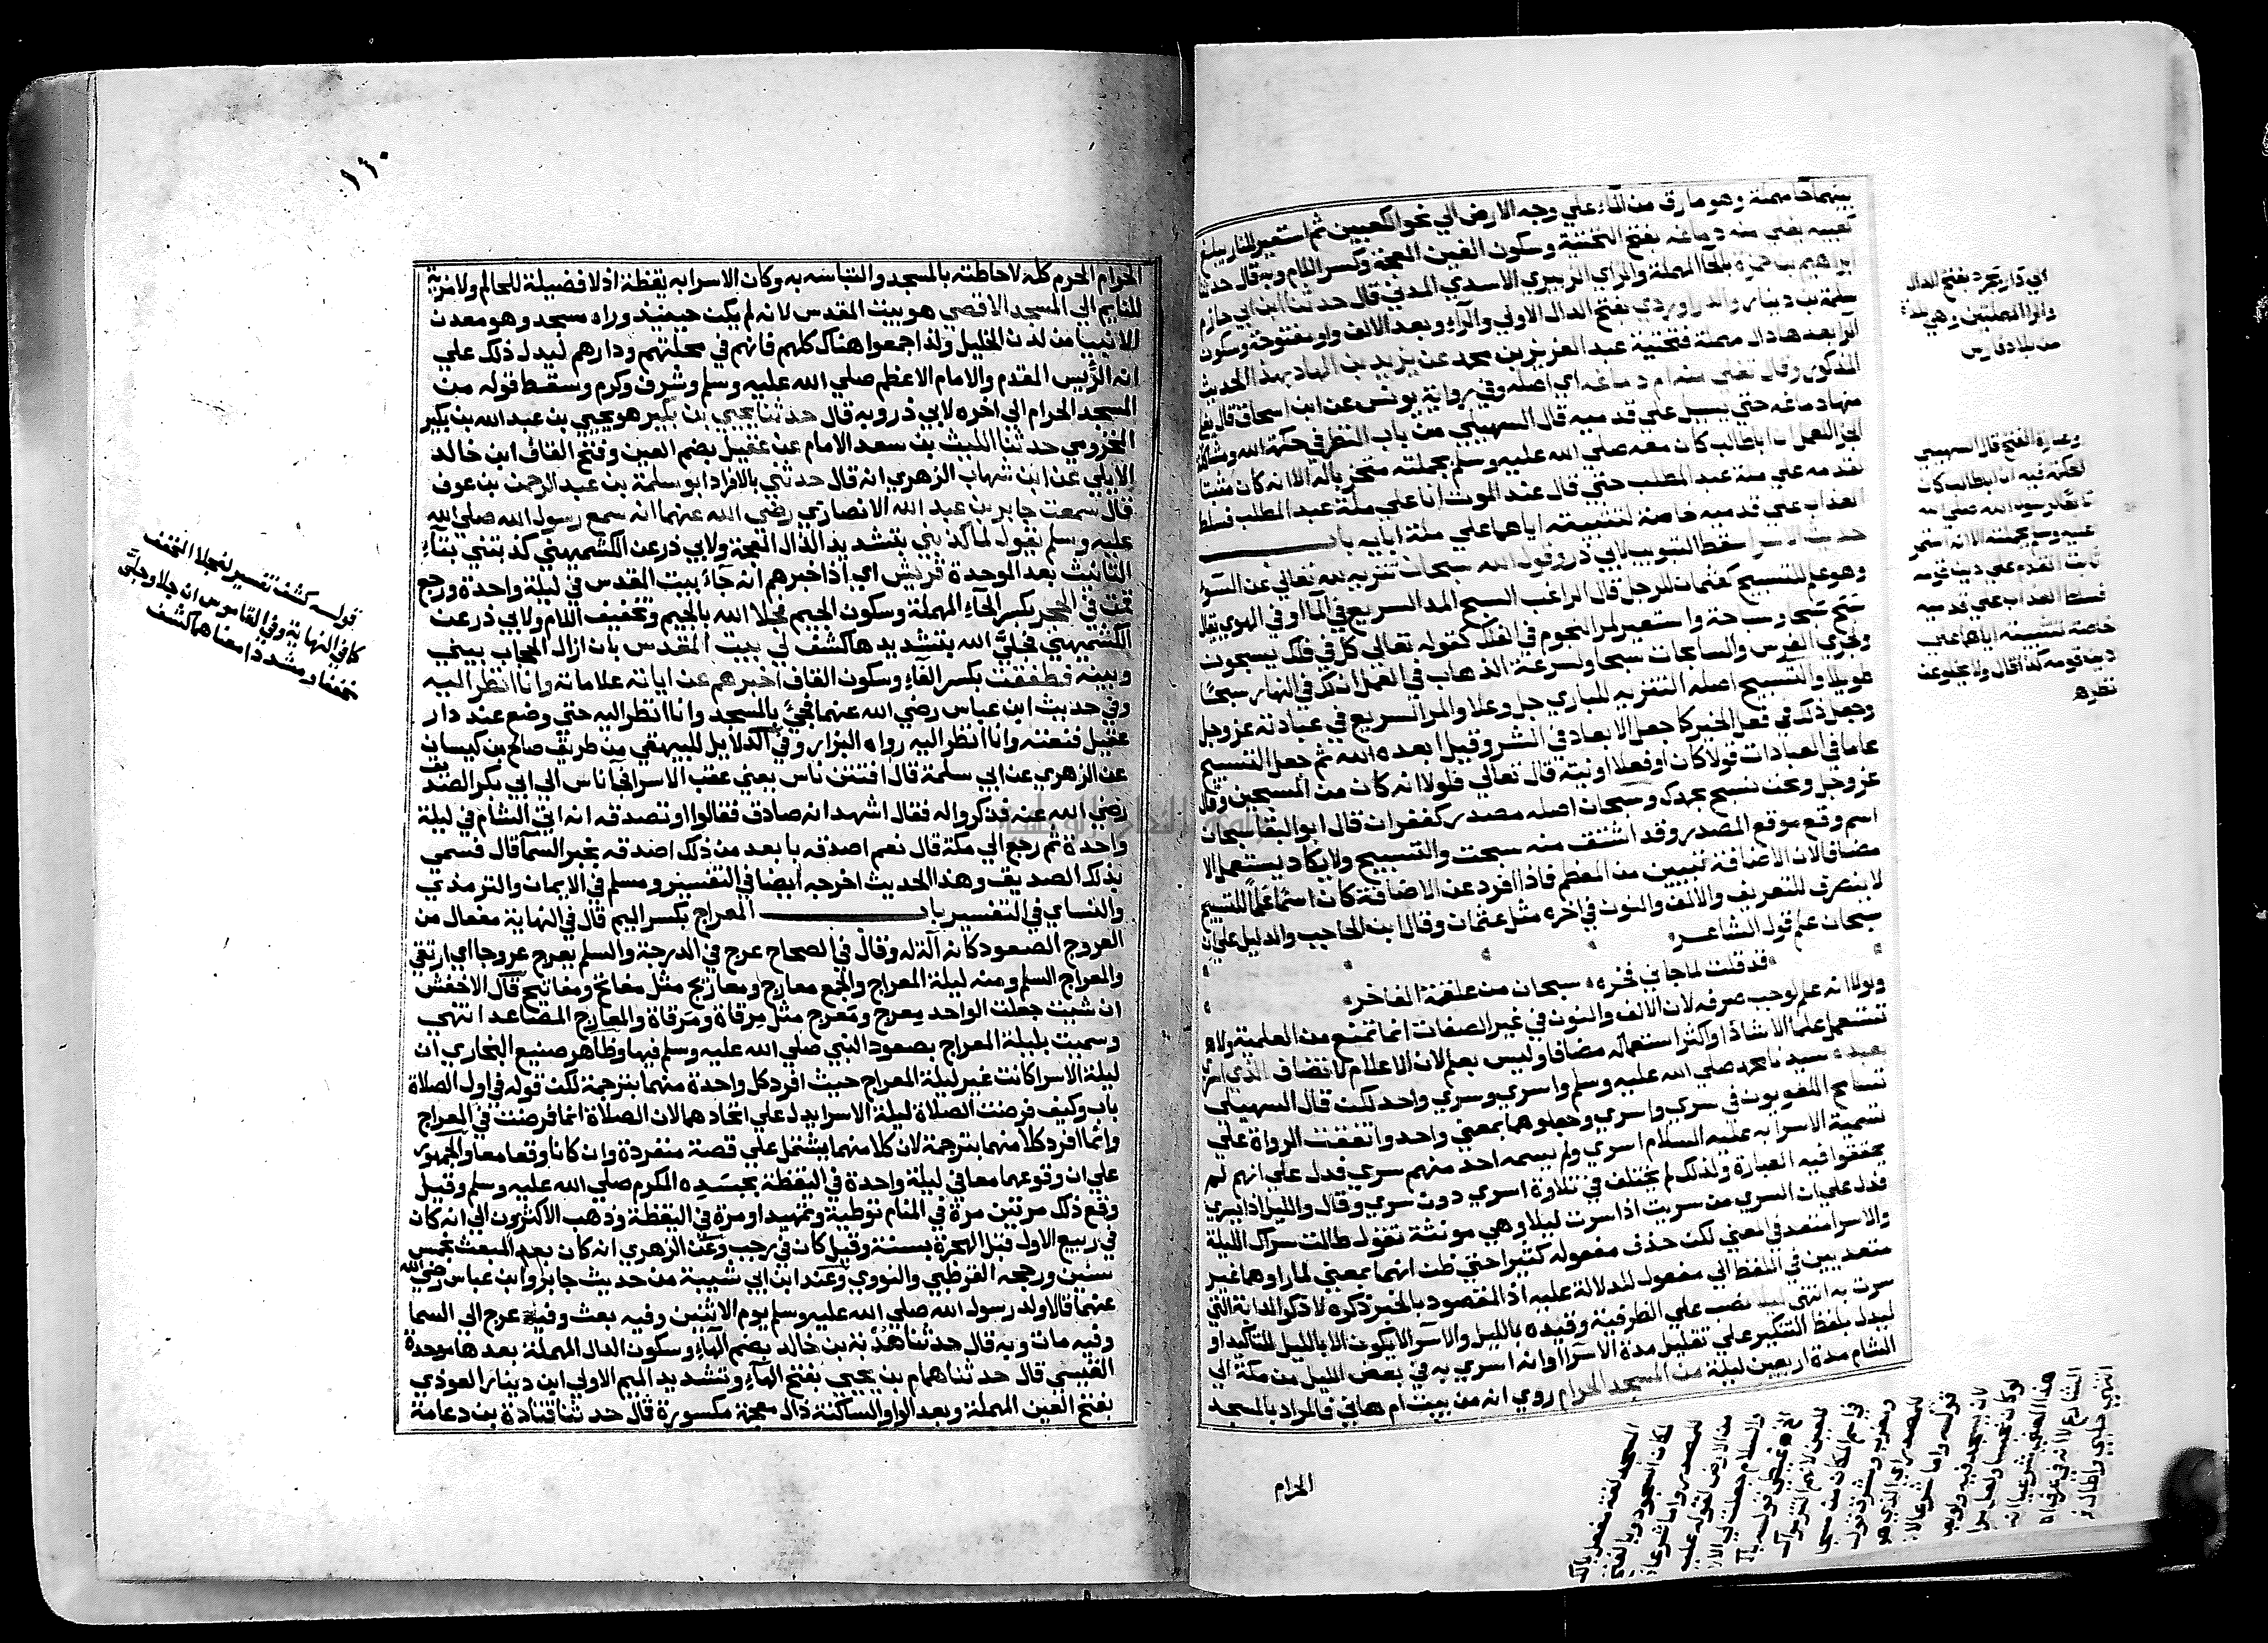 بينهما حا مهملة وهو ما رق من الماء علي وجه الارض الي نحو الكعبين ثم استعير للنار يبلغ
كعبيه يغلي منه دماغه بفتح التحتية وسكون الغين المعجمة وكسر اللام وبه قال حدثنا
ابراهيم بن حمزة بالحا المهملة والزاي الزبيري الاسدي المدني قال حدثنا ابن ابي حازم
سلمة بن دينار والدراوردي بفتح الدال الاولي والراء وبعد الالف واو مفتوحة وسكون
الرا بعدها دال مهملة فتحتية عبد العزيز بن محمد عن يزيد بن الهاد بهذا الحديث
المذكور وقال تغلي منه ام دماغه اي اصله وفي رواية يونس عن ابن اسحاق قال يغلي
منها دماغه حتي يسيل علي قدميه قال السهيلي من باب النظر في حكمة الله ومشاكلة
الجزا للعمل ان اباطالب كان معه صلي الله عليه وسلم بجملته متحزبا له الا انه كان مثبتا
لقدمه علي ملة عبد المطلب حتي قال عند الموت انا علي ملة عبد المطلب فسلط
العذاب علي قدميه خاصة لتثبيته اياهما علي ملة ابايه باب
حديث الاسرا سقط التبويب لابي ذر وقول الله سبحان تنزيه لله تعالي عن السوء
وهو علم للتسبيح كعثمان للرجل قال الراغب السبح المد السريع في الما او في الهوي يقال
سَبَح سَبْحا وسباحة واستعير لمر النجوم في الفلك كقوله تعالي كل في فلك يسبحون
ولجري الفرس والسابحات سبحا ولسرعة الذهاب في العمل ان لك في النهار سبحا
طويلا والتسبيح اصله التنزيه للباري جل وعلا والمر السريع في عبادته عز وجل
وجعل ذلك في فعل الخير كما جعل الابعاد في الشر وقيل ابعده الله ثم جعل التسبيح
عاما في العبادات قولا كان او فعلا او نية قال تعالي فلولا انه كان من المسبحين وقال
عز وجل ونحن نسبح بحمدك وسبحان اصله مصدر كغفران قال ابو البقا سبحان
اسم وقع موقع المصدر وقد اشتق منه سبحت والتسبيح ولا يكاد يستعمل الا
مضافا لان الاضافة تبيين من المعظم فاذا افرد عن الاضافة كان اسما علما للتسبيح
لا ينصرف للتعريف والالف والنون في اخره مثل عثمان وقال ابن الحاجب والدليل علي ان
سبحان علم قول الشاعر
قد قلت لما جاني فخره سبحان من علقمة الفاخر
ولولا انه علم لوجب صرفه لان الالف والنون في غير الصفات انما تمنع من العلمية ولا
تستعمل علما الا شاذا واكثر استعماله مضافا وليس بعلم لان الاعلام لا تضاف الذي اسري
بعبده سيدنا محمد صلي الله عليه وسلم واسري وسري واحد لكن قال السهيلي
تسامح اللغويون في سري واسري وجعلوهما بمعني واحد واتفقت الرواة علي
تسمية الاسرا به عليه السلام اسري ولم يسمه احد منهم سري فدل علي انهم لم
يحققوا فيه العبارة ولذلك لم يختلف في تلاوة اسري دون سري وقال والليل اذا يسري
فدل علي ان السري من سريت اذا سرت ليلا وهي مونثة تقول طالت سراك الليلة
والاسرا متعد في المعني لكن حذف مفعوله كثيرا حتي ظن انهما بمعني لما راوهما غير
متعديين في اللفظ الي مفعول للدلالة عليه اذ المقصود بالخبر ذكره لا ذكر الدابة التي
سرت به انتهي ليلا نصب علي الظرفية وقيده بالليل والاسرا لا يكون الا بالليل للتاكيد او
ليدل بلفظ التنكير علي تقليل مدة الاسرا وانه اسري به في بعض الليل من مكة الي
الشام مدة اربعين ليلة من المسجد الحرام روي انه من بيت ام هاني فالمراد بالمسجد
الحرام
اي دار بجرد بفتح الدال
والرا المهملتين وهي بلدة
من بلاد فارس
وعبارة الفتح قال السهيلي
الحكمة فيه ان اباطالب كان
تابعا لرسول الله صلي الله
عليه وسلم بجملته الا انه استمر
ثابت القدم علي دين قومه
فسلط العذاب علي قدميه
خاصة لتثبيته اياهما علي
دين قومه كذا قال ولا يخلو عن
نظر ه
١١٠
الحرام الحرم كله لاحاطته بالمسجد والتباسه به وكان الاسرا به يقظة اذ لا فضيلة للحالم ولا مزية
للنايم الي المسجد الاقصي هو بيت المقدس لانه لم يكن حينيذ وراه مسجد وهو معدن
الانبيا من لدن الخليل ولذا جمعوا هناك كلهم فامهم في محلتهم ودارهم ليدل ذلك علي
انه الرييس المقدم والامام الاعظم صلي الله عليه وسلم وشرف وكرم وسقط قوله من
المسجد الحرام الي اخره لابي ذر وبه قال حدثنا يحيي بن بكير هو يحيي بن عبد الله بن بكير
المخزومي حدثنا الليث بن سعد الامام عن عقيل بضم العين وفتح القاف ابن خالد
الايلي عن ابن شهاب الزهري انه قال حدثني بالافراد ابو سلمة بن عبد الرحمن بن عوف
قال سمعت جابر بن عبد الله الانصاري رضي الله عنهما انه سمع رسول الله صلي الله
عليه وسلم يقول لما كذبني بتشديد الذال المعجمة ولابي ذر عن الكشميهني كذبتني بتاء
التانيث بعد الموحدة قريش اي اذ اخبرهم انه جاء بيت المقدس في ليلة واحدة ورجع
قمت في الحجر بكسر الحاء المهملة وسكون الجيم فجلا الله بالجيم وتخفيف اللام ولابي ذر عن
الكشميهني فجلّي الله بتشديدها كشف لي بيت المقدس بان ازال الحجاب بيني
وبينه فطفقت بكسر الفاء وسكون القاف اخبرهم عن اياته علاماته وانا انظر اليه
وفي حديث ابن عباس رضي الله عنهما فجيء بالمسجد وانا انظر اليه حتي وضع عند دار
عقيل فنعته وانا انظر اليه رواه البزار وفي الدلايل للبيهقي من طريق صالح بن كيسان
عن الزهري عن ابي سلمة قال افتتن ناس يعني عقب الاسرا فجا ناس الي ابي بكر الصديق
رضي الله عنه فذكروا له فقال اشهد انه صادق فقالوا وتصدقه انه اتي الشام في ليلة
واحدة ثم رجع الي مكة قال نعم اصدقه بابعد من ذلك اصدقه بخبر السما قال فسمي
بذلك الصديق وهذا الحديث اخرجه ايضا في التفسير ومسلم في الايمان والترمذي
والنساي في التفسير باب المعراج بكسر الميم قال في النهاية مفعال من
العروج الصعود كانه آلة له وقال في الصحاح عرج في الدرجة والسلم يعرج عروجا اي ارتقي
والمعراج السلم ومنه ليلة المعراج والجمع معارج ومعاريج مثل مفاتح ومفاتيح قال الاخفش
ان شيت جعلت الواحد مِعرج ومَعرج مثل مِرقاة ومَرقاة والمعارج المصاعد انتهي
وسميت بليلة المعراج بصعود النبي صلي الله عليه وسلم فيها وظاهر صنيع البخاري ان
ليلة الاسرا كانت غير ليلة المعراج حيث افرد كل واحدة منهما بترجمة لكن قوله في اول الصلاة
باب وكيف فرضت الصلاة ليلة الاسرا يدل علي اتحادهما لان الصلاة انما فرضت في المعراج
وانما افرد كلا منهما بترجمة لان كلا منهما يشتمل علي قصة منفردة وان كانا وقعا معا والجمهور
علي ان وقوعهما معا في ليلة واحدة في اليقظة بجسده المكرم صلي الله عليه وسلم وقيل
وقع ذلك مرتين مرة في المنام توطية وتمهيدا ومرة في اليقظة وذهب الاكثرون الي انه كان
في ربيع الاول قبل الهجرة بسنة وقيل كان في رجب وعن الزهري انه كان بعد المبعث بخمس
سنين ورجحه القرطبي والنووي وعند ابن ابي شيبة من حديث جابر وابن عباس رضي الله
عنهما قالا ولد رسول الله صلي الله عليه وسلم يوم الاثنين وفيه بعث وفيه عرج الي السما
وفيه مات وبه قال حدثنا هُدْبة بن خالد بضم الهاء وسكون الدال المهملة بعدها موحدة
القيسي قال حدثنا همام بن يحيي بفتح الهاء وتشديد الميم الاولي ابن دينار العوذي
بفتح العين المهملة وبعد الواو الساكنة ذال معجمة مكسورة قال حدثنا قتادة بن دعامة
قوله كشف تفسير لجلا المخفف
كما في النهاية وفي القاموس ان جلا وجلّي
مخففا ومشددا معناهما كشف